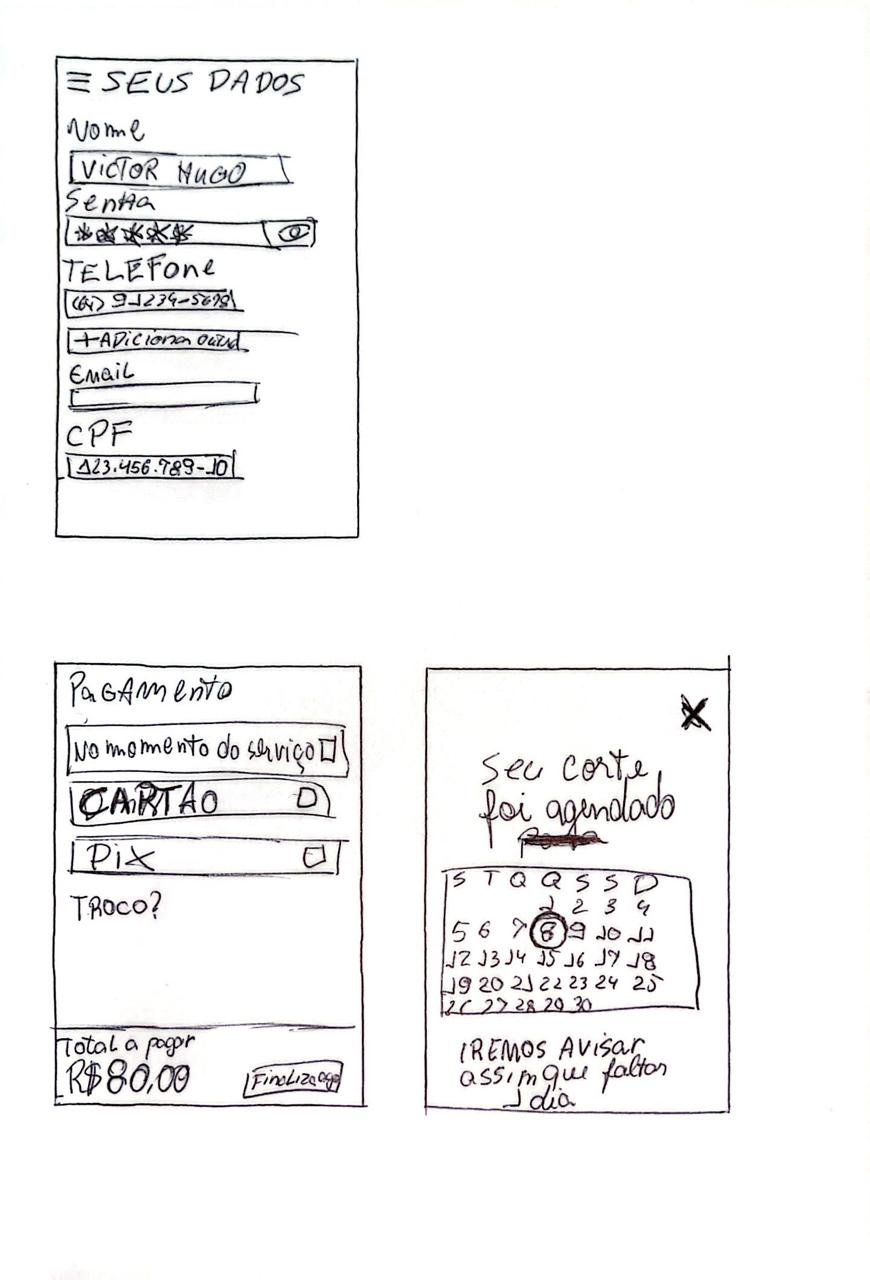 SEUS DADOS
Nome
VICTOR HUGO
Senha
*****
TELEFone
9 1234-5678
+ADiciona
Email
CPF
123.456.789-10
PAGAmento
No momento do serviço
CARTÃO
Pix
TROCO?
Total a pagar
R$80,00
Seu corte
foi agendado
S T Q Q S S D
1 2 3 4
5 6 7 8 9 10 11
12 13 14 15 16 17 18
19 20 21 22 23 24 25
26 27 28 29 30
IREMOS AVisar
assim que faltar
1 dia